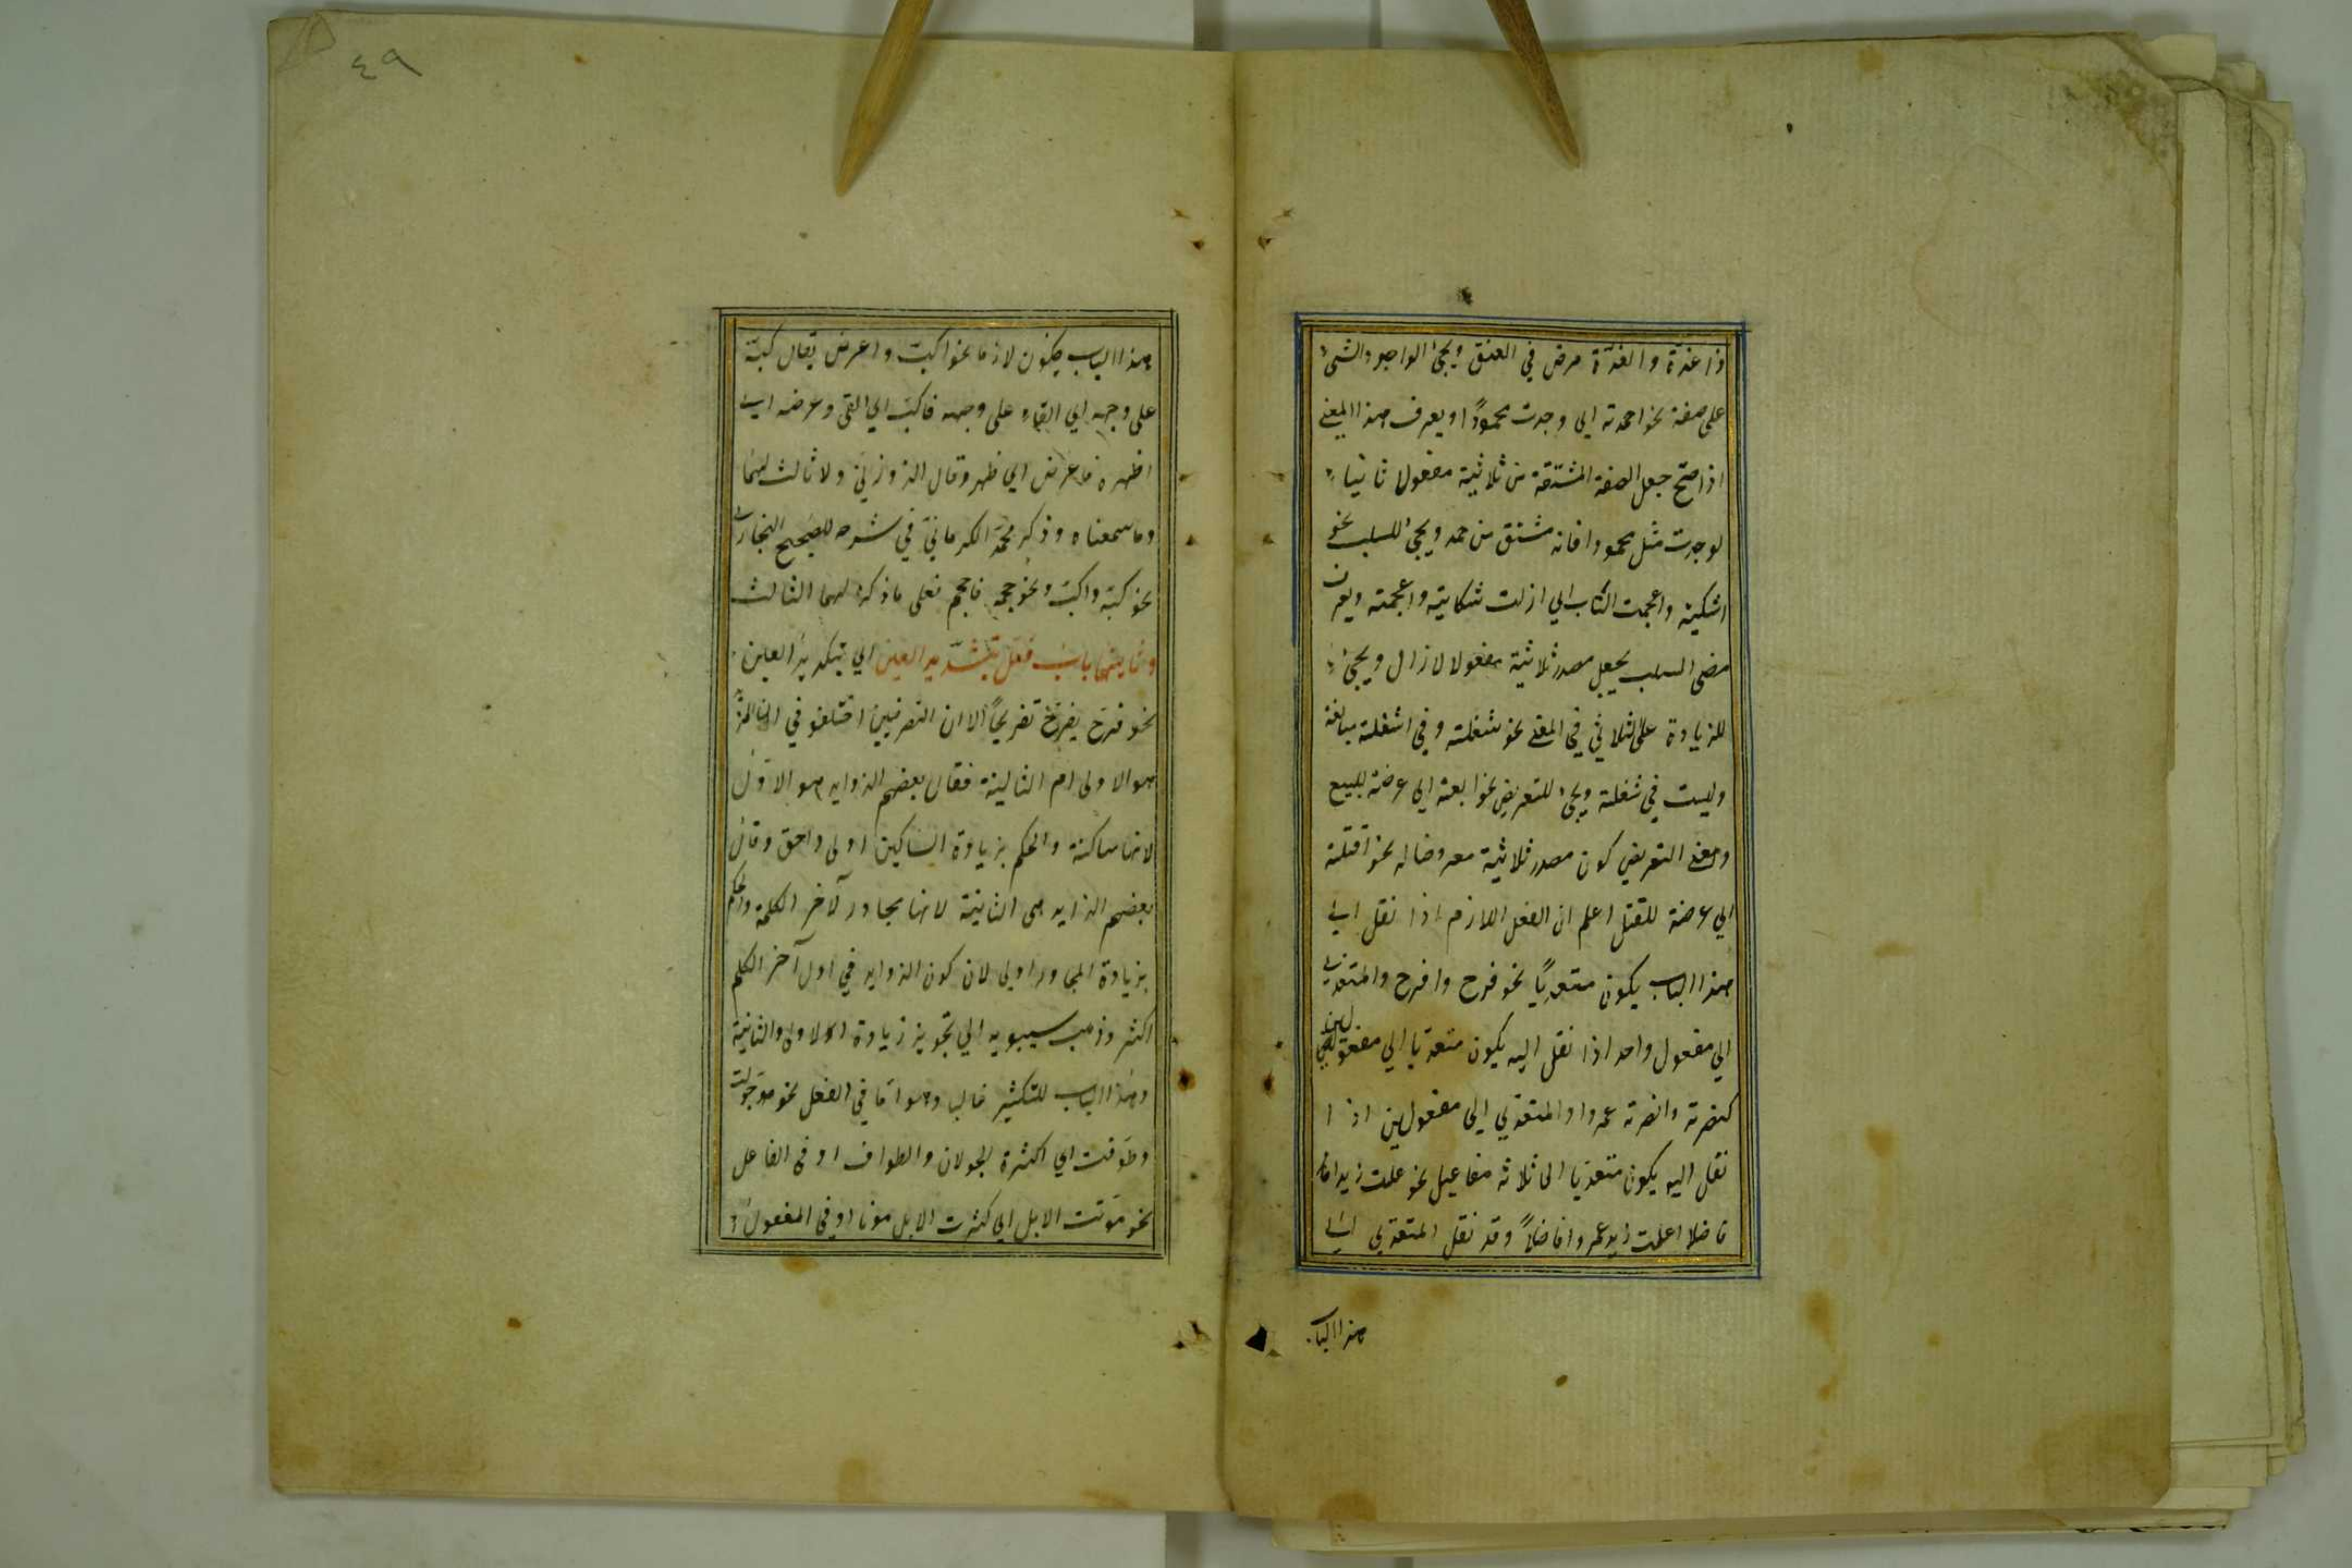 ذا غدّة والغدّة مرض في العنق ويجئ الواجد والشئ
على صفة نحو احمدته اي وجدت محموداً ويعرف هذا المعنى
اذا صحّ جعل الصفة المشتقة من ثلاثية مفعولا ثانيا
لوجدت مثل محمودا فانه مشتق من حمد ويجئ للسلب نحو
اشكيته واعجمت الكتاب اي ازلت شكايته واعجمته ويعرف
معنى السلب بجعل مصدر ثلاثية مفعولا لازال ويجئ
للزيادة على الثلاثي في المعنى نحو شغلته وفي اشغلته مبالغة
وليست في شغلته ويجئ للتعريض نحو ابعته اي عرضته للبيع
ومعنى التعريض كون مصدر ثلاثية معروضا له نحو اقتلته
اي عرضته للقتل اعلم ان الفعل اللازم اذا نقل الى
هذا الباب يكون متعديًا نحو فرح وافرح والمتعدي
الي مفعول واحد اذا نقل اليه يكون متعديا الي مفعولين
كنصرته وانصرته عمروا والمتعدي الى مفعولين اذا
نقل اليه يكون متعديا الى ثلاثة مفاعيل نحو علمت زيدا
فاضلا اعلمت زيد عمروا فاضلاً وقد نقل المتعدي الى
هذا الباب
٤٩
هذا الباب يكون لازما نحو اكبّ واعرض يقال كبّه
على وجهه اي القاه على وجهه فاكبّ اي القى وعرضه اي
اظهره فاعرض اي ظهر وقال الزوزنيّ ولا ثالث لهما
وما سمعناه وذكر محمّد الكرمانيّ في شرحه للصحيح البخاري
نحو كبّه واكبّ ونحو حجمه فاحجم فعلى ما ذكره لهما الثالث
وثانيتها باب فعّل بتشديد العين اي بتكرير العين
نحو فرّح يفرّح تفريحاً الا ان التصرفيين اختلفو في ان الزائد
هو الاولى ام الثانية فقال بعضهم الزوايد هو الاوّل
لانها ساكنة والحكم بزيادة الساكن اولى واحق وقال
بعضهم الزايد هى الثانية لانها بجاور لآخر الكلمة والحكم
بزيادة المجاور اولى لان كون الزوايد في اول آخر الكلم
اكثر وذهب سيبويه الي تجويز زيادة الاولى والثانية
وهذا الباب للتكثير غالبا وهو امّا في الفعل نحو جوّلت
وطوّفت اي اكثرة الجولان والطواف او فى الفاعل
نحو موّتت الابل اي كثرت الابل موتا او فى المفعول